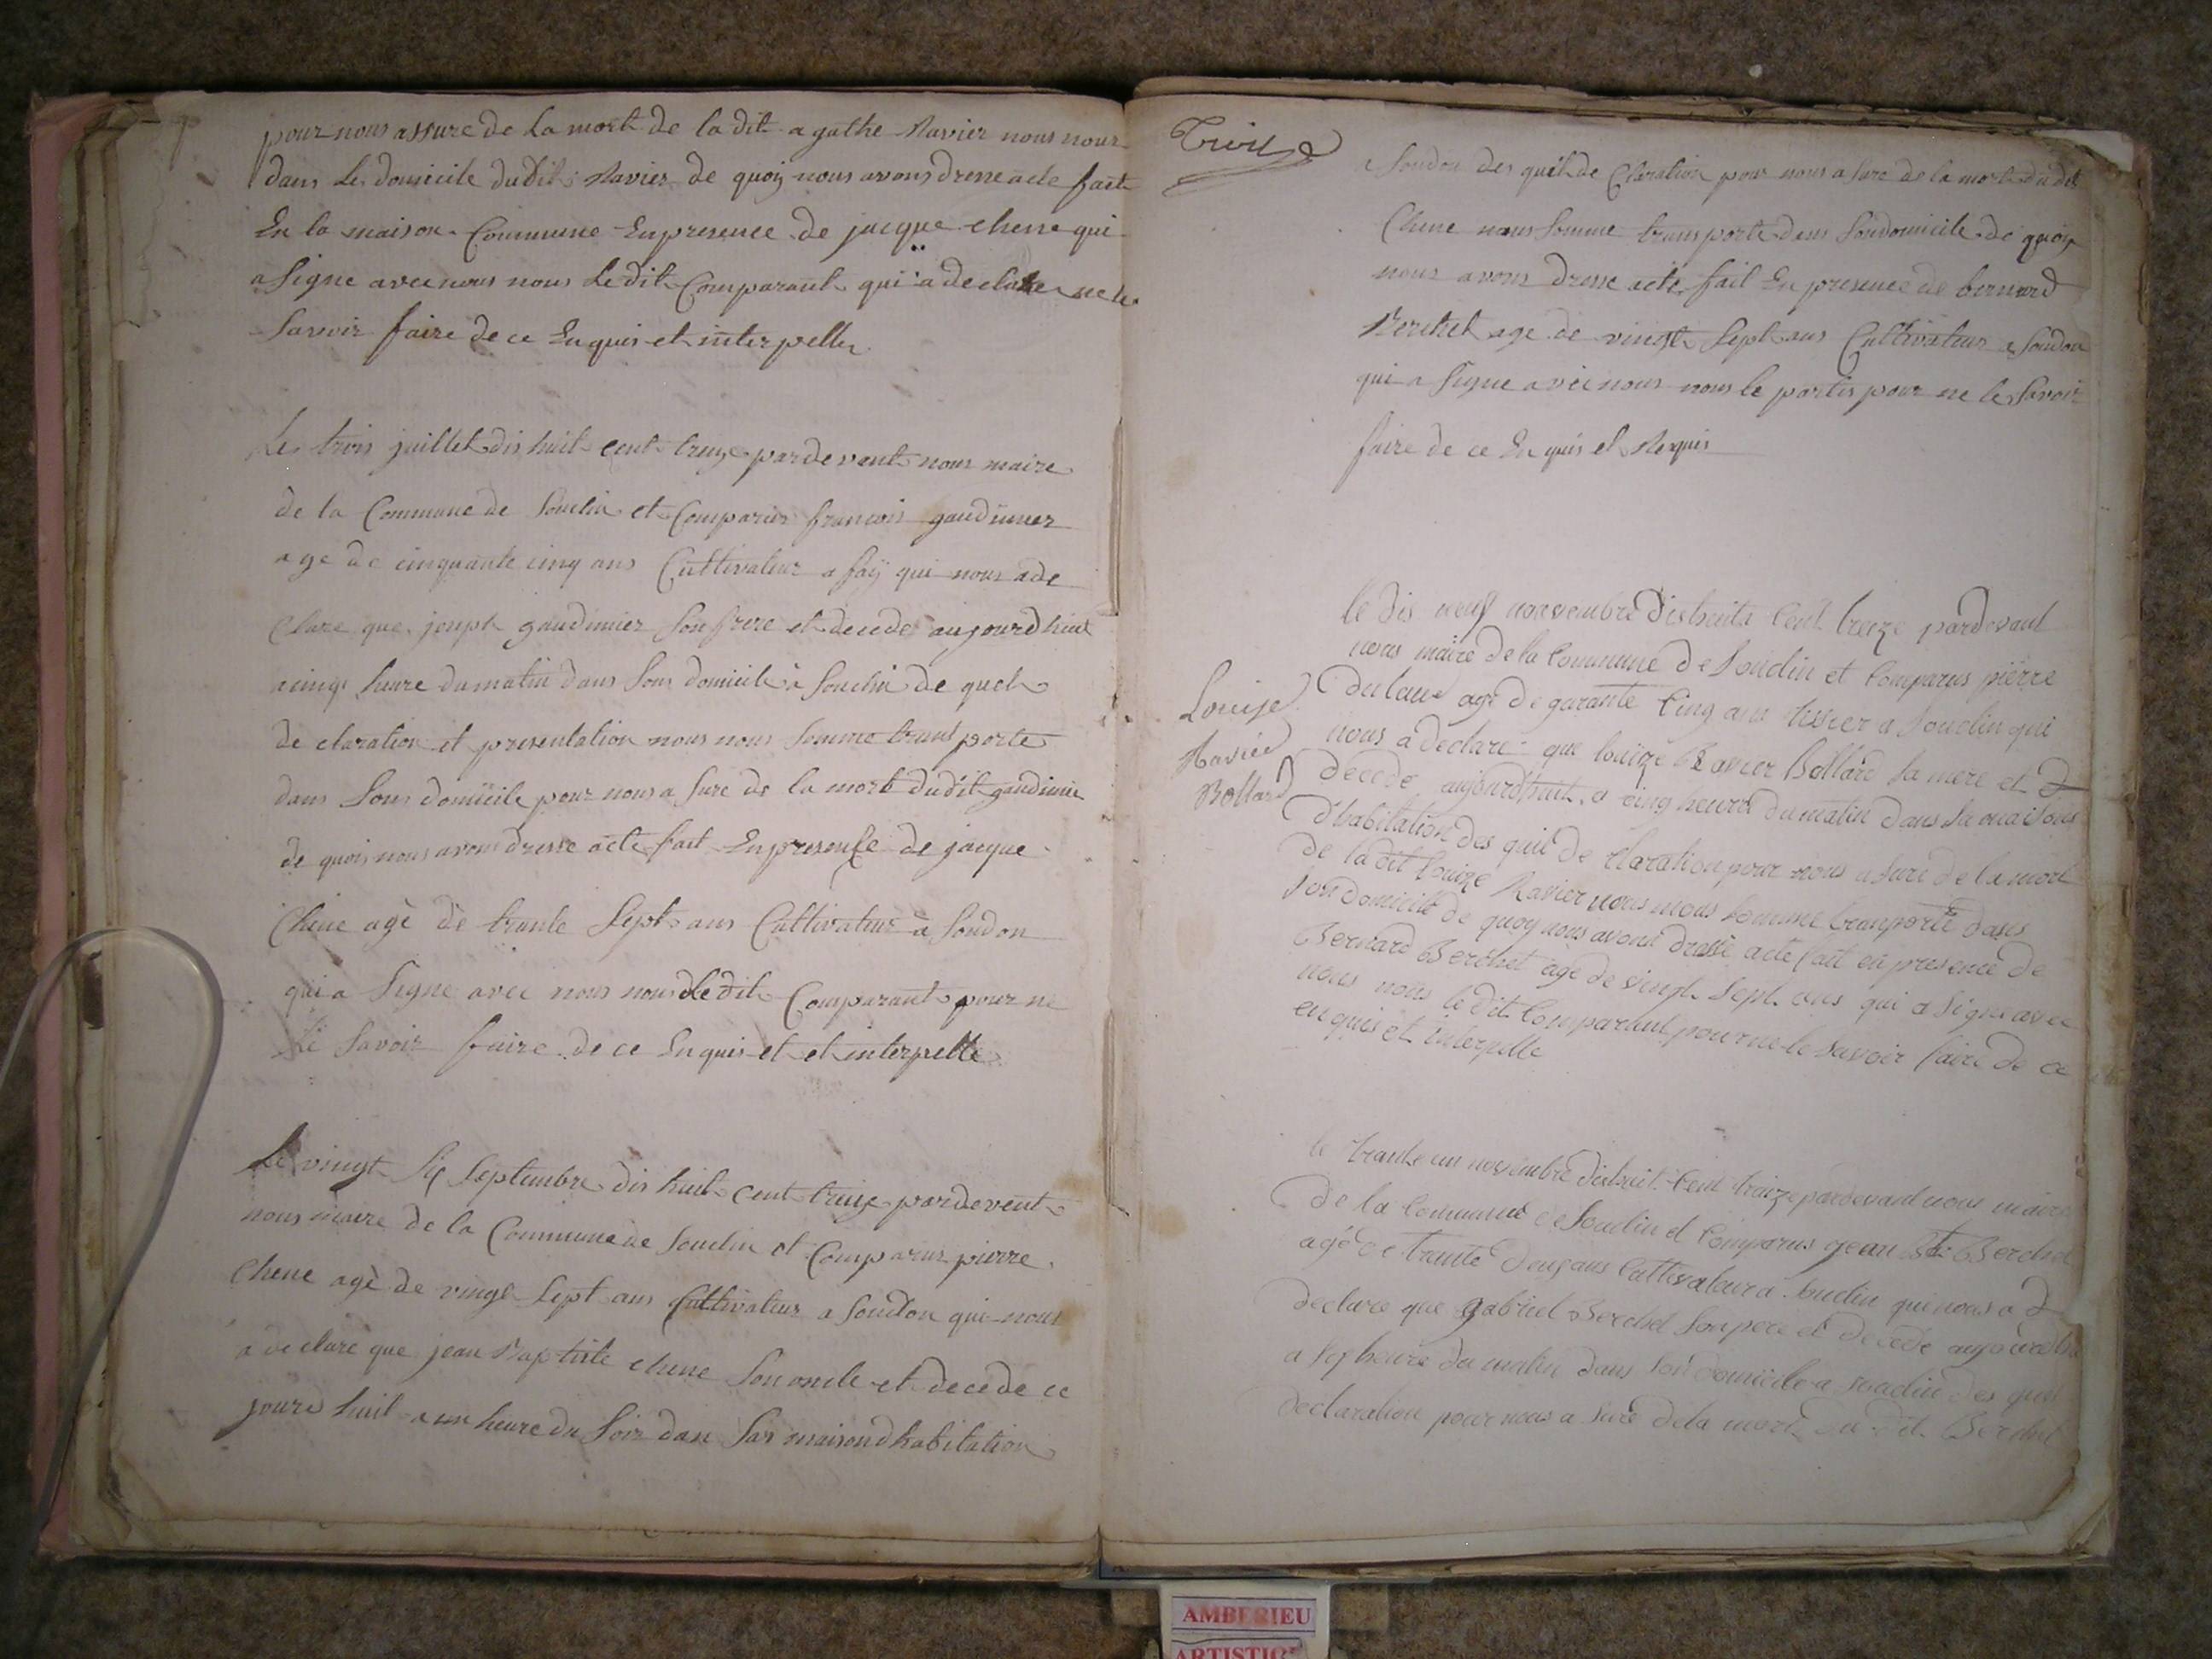 pour nous assure de La mort de la dit agathe Ravier nous nous
dans Les domicile dudit Ravier de quoy nous avons dresse acte fait
En la maison Commune En presence de jacque chene qui
a Signe avec nous nous Le dit Comparant qui a declare ne le
Savoir faire de ce Enquis et interpelle
Le trois juillet dis huit cent treize pardevant nous maire
de la Commune de Souclin et Comparus francois gaudimier
age de cinquante cinq ans Cultivateur a fay qui nous a de
Clare que joseph gaudimier Son frere et decede aujourdhuit
a cinq heure du matin dans Son domicile à Souclin de quel
de claration et presentation nous nous Somme transporte
dans Son domicile pour nous a Sure de la mort dudit gaudimie
de quois nous avons dresse acte fait En presense de jacque
Chene agè de trante Sept ans Cultivateur à Soudon
qui a Signe avec nous nous Le dit Comparant pour ne
Le Savoir faire de ce Enquis et et interpelle
Le vingt Six Septembre dis huit cent treize pardevent
nous maire de la Commune de Souclin et Comparus pierre
Chene agè de vingt Sept ans Cultivateur a Soudon qui nous
a de clare que jean Baptiste chene Son oncle et decede ce
jourd huit a un heure du Soir dan Sas maison dhabitation
Treize
a Soudon des quel de Claration pour nous a Sure de la mort du dit
Chene nous Somme transporte dans Son domicile de quoy
nous avons dresse acte fait En presence de bernard
Berchet age de vingt Sept ans Cultivateur a Soudon
qui a Signe avec nous nous le partis pour ne le Savoir
faire de ce Enquis et Requis
le dis neuf novembre dishuita Cent treize pardevant
nous maire de la Commune de Souclin et Comparus pierre
age de garante Cinq ans tissier a Souclin qui
Louise
nous a declare que louize Ravier Bollard Sa mere et d
Ravier
decede aujourdhuit a cinq heure du matin dans Sa maison
Bollard
d'habitation des quil de Claration pour nous a Sure de la mort
de ladit Louize Ravier nous nous Somme transporte dans
Son domicile de quoy nous avons dresse acte fait en presence de
Bernard Berchet age de vingt Sept ans qui a Signe avec
nous nous le dit Comparant pour ne le Savoir faire de ce
enquis et interpelle
le trante un novembre dishuit Cent treize pardevant nous maire
de la Commune de Souclin et Comparus jean Bte Berchet
agé de trante Cultivateur a Souclin qui nous a d
declare que gabriel Berchet Son pere et decede aujourdhui
a Six heure du matin dans Son domicile a Souclin des quel
declaration pour nous a Sure de la mort du dit Berchet
AMBERIEU